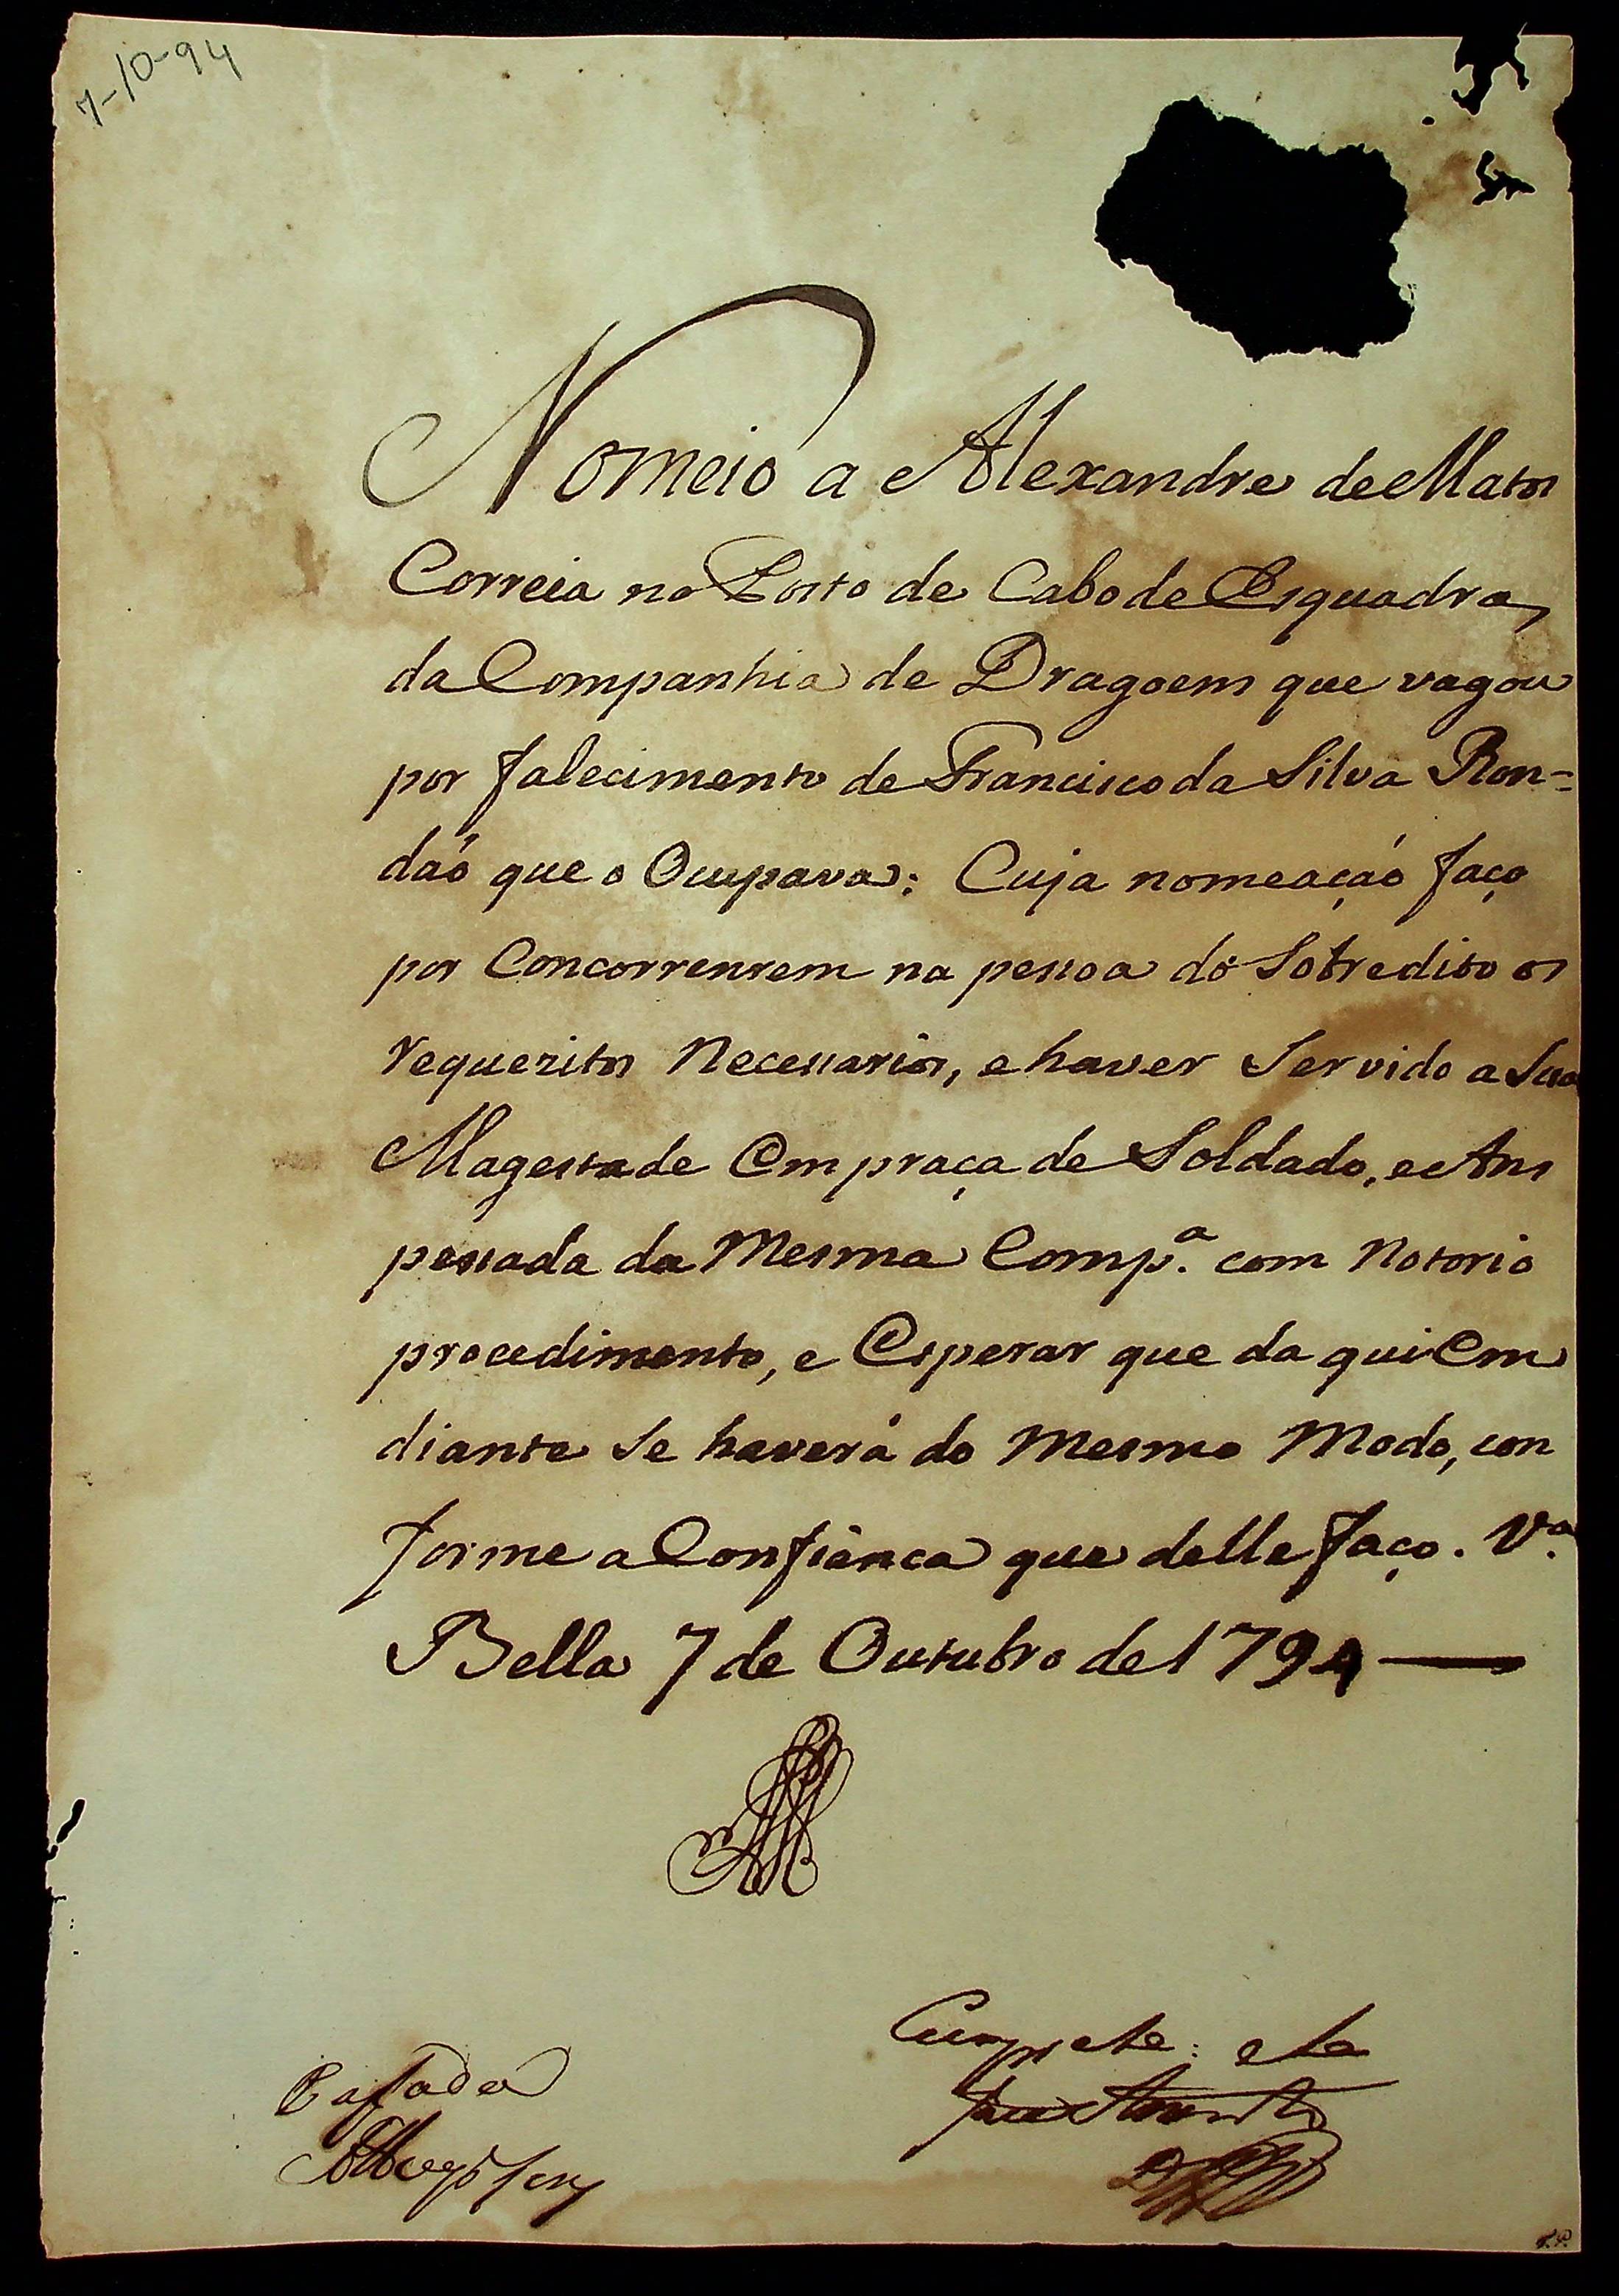 7-10-94
Nomeio a Alexandre de Matos
Correia no Posto de Cabo de Esquadra,
da Companhia de Dragoens que vagou
por falecimento de Francisco da Silva Ron=
daõ que o Ocupava: Cuja nomeaçaõ faço
por Concorrerem na pessoa do Sobredito os
requezitos Necessarios, e haver Servido a Sua
Magestade Em praça de Soldado, e Ans
pessada da Mesma Comp.ª com Notorio
procedimento, e Esperar que da qui Em
diante Se haverá do Mesmo Modo, con
forme a Confiança que delle faço. V.ª
Bella 7 de Outubro de 1794
Cumpra se: e se